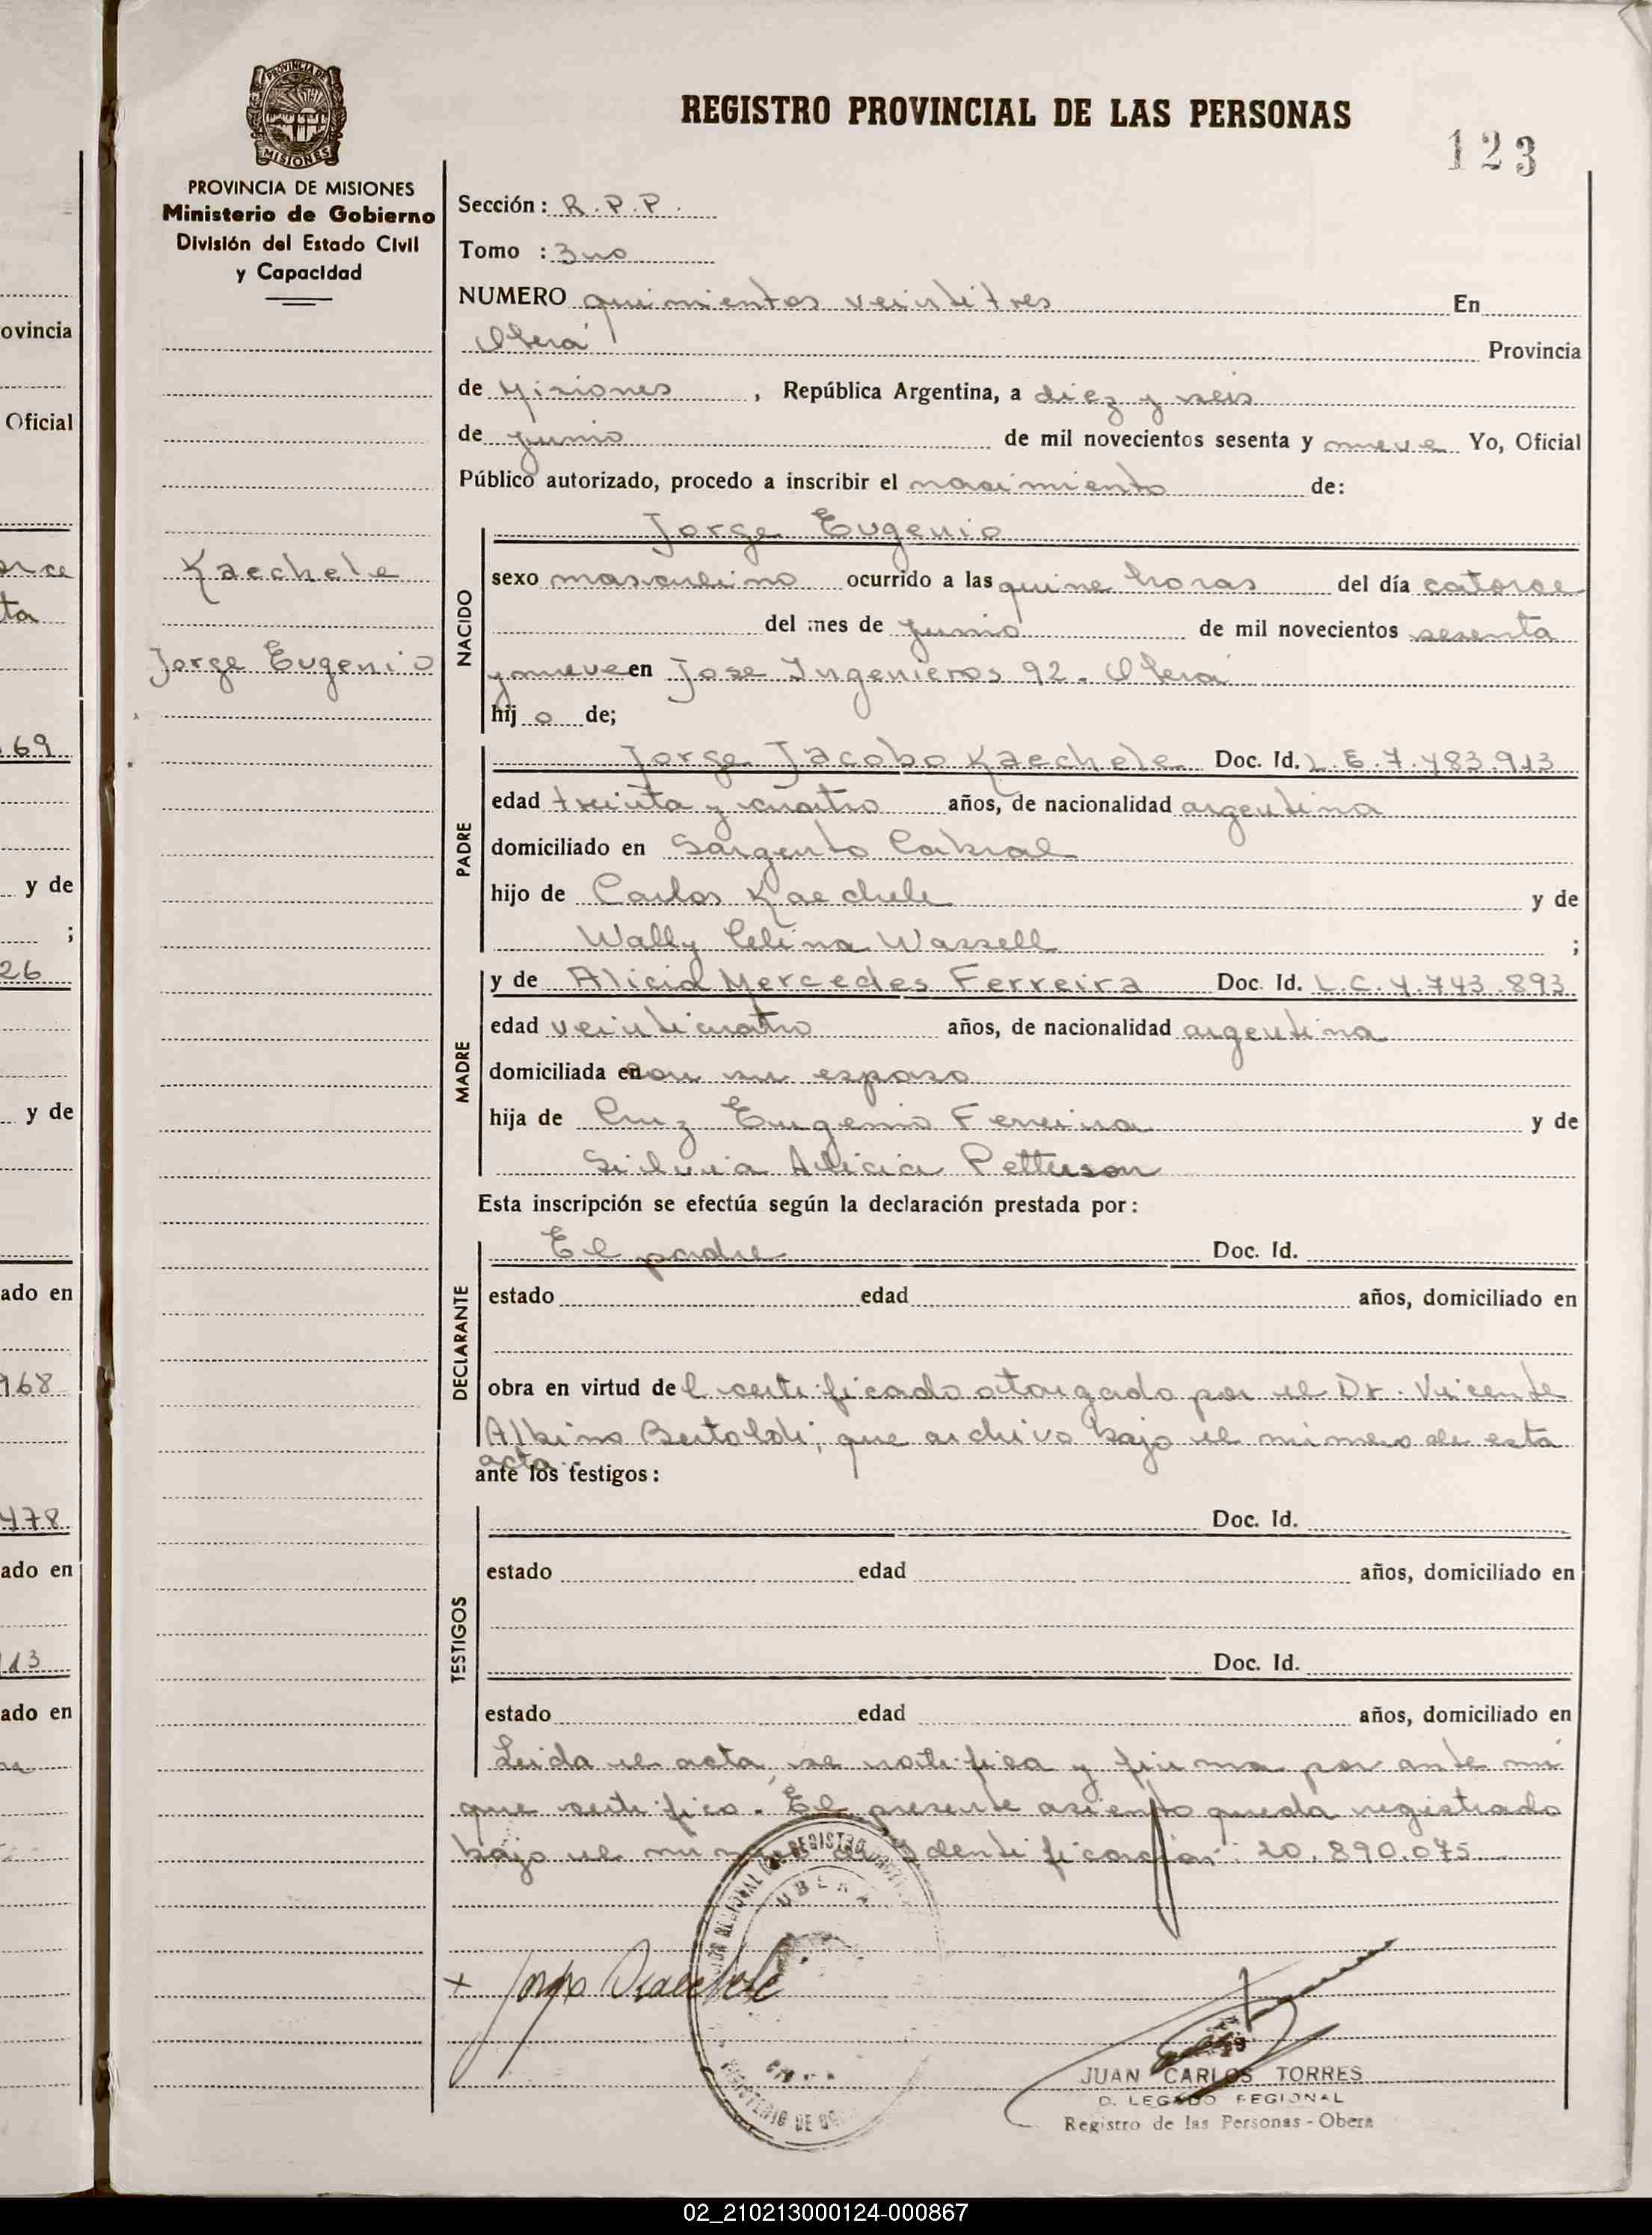 PROVINCIA DE
MISIONES
PROVINCIA DE MISIONES
Ministerio de Gobierno
División del Estado Civil
y Capacidad
Kaechele
Jorge Eugenio
ovincia
Oficial
ta
69
y de
;
26
y de
ado en
968
478
ado en
13
ado en
REGISTRO PROVINCIAL DE LAS PERSONAS
123
Sección: R.P.P.
Tomo : 3ro
NUMERO quinientos veintitres En
Oberá Provincia
de Misiones, República Argentina, a diez y seis
de junio de mil novecientos sesenta y nueve Yo, Oficial
Público autorizado, procedo a inscribir el nacimiento de:
NACIDO
Jorge Eugenio
sexo masculino ocurrido a las quine horas del día catorce
del mes de junio de mil novecientos sesenta
y nueve en Jose Ingenieros 92. Oberá
hijo de;
PADRE
Jorge Jacobo Kaechele Doc. Id. L.E.7.483.913
edad treinta y cuatro años, de nacionalidad argentina
domiciliado en Sargento Cabral
hijo de Carlos Kaechele y de
Wally Celina Wassell ;
MADRE
y de Alicia Mercedes Ferreira Doc. Id. L.C.4.743.893
edad veinticuatro años, de nacionalidad argentina
domiciliada en con su esposo
hija de Cruz Eugenio Ferreira y de
Silvia Alicia Petterson
Esta inscripción se efectúa según la declaración prestada por:
DECLARANTE
El padre Doc. Id.
estado edad años, domiciliado en
obra en virtud del certificado otorgado por el Dr. Vicente
Albino Bertoldi, que archivo bajo el número de esta
acta.
ante los testigos:
TESTIGOS
Doc. Id.
estado edad años, domiciliado en
Doc. Id.
estado edad años, domiciliado en
Leida el acta, se ratifica y firma por ante mi
que certifico. El presente asiento queda registrado
bajo el número de identificación: 20.890.075
OBERA
Jorge Kaechele
JUAN CARLOS TORRES
D. LEGADO REGIONAL
Registro de las Personas - Obera
02_210213000124-000867